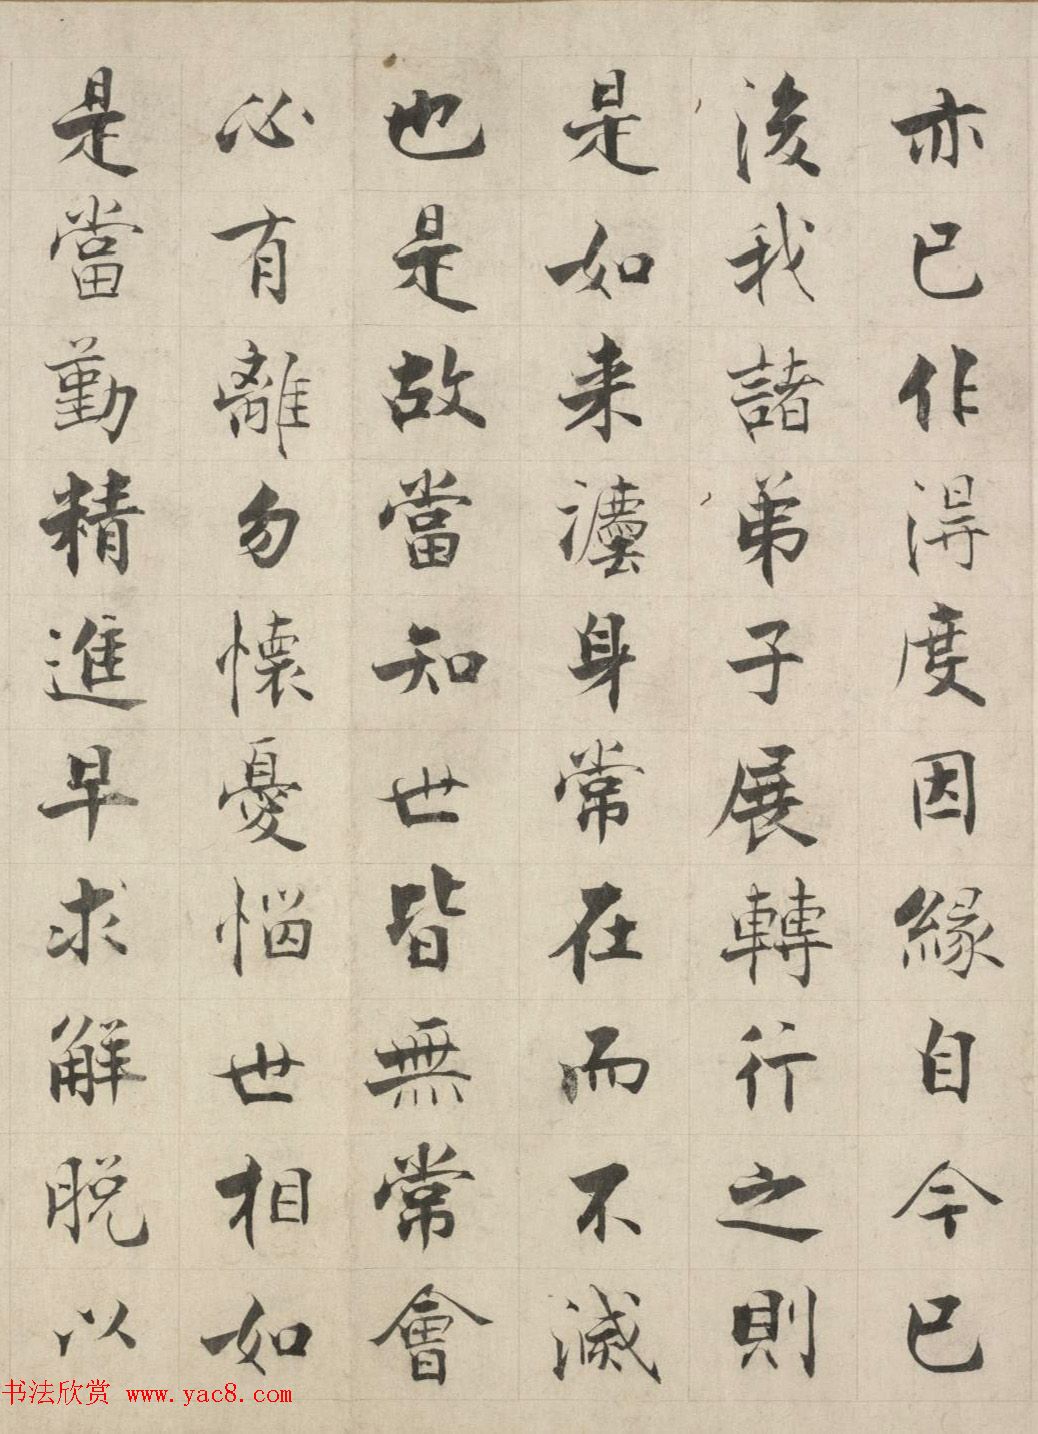 亦已作得度因緣自今已
後我諸弟子展轉行之則
是如来灋身常在而不滅
也是故當知世皆無常會
必有離勿懷憂惱世相如
是當勤精進早求解脫以
书法欣赏 www.yac8.com